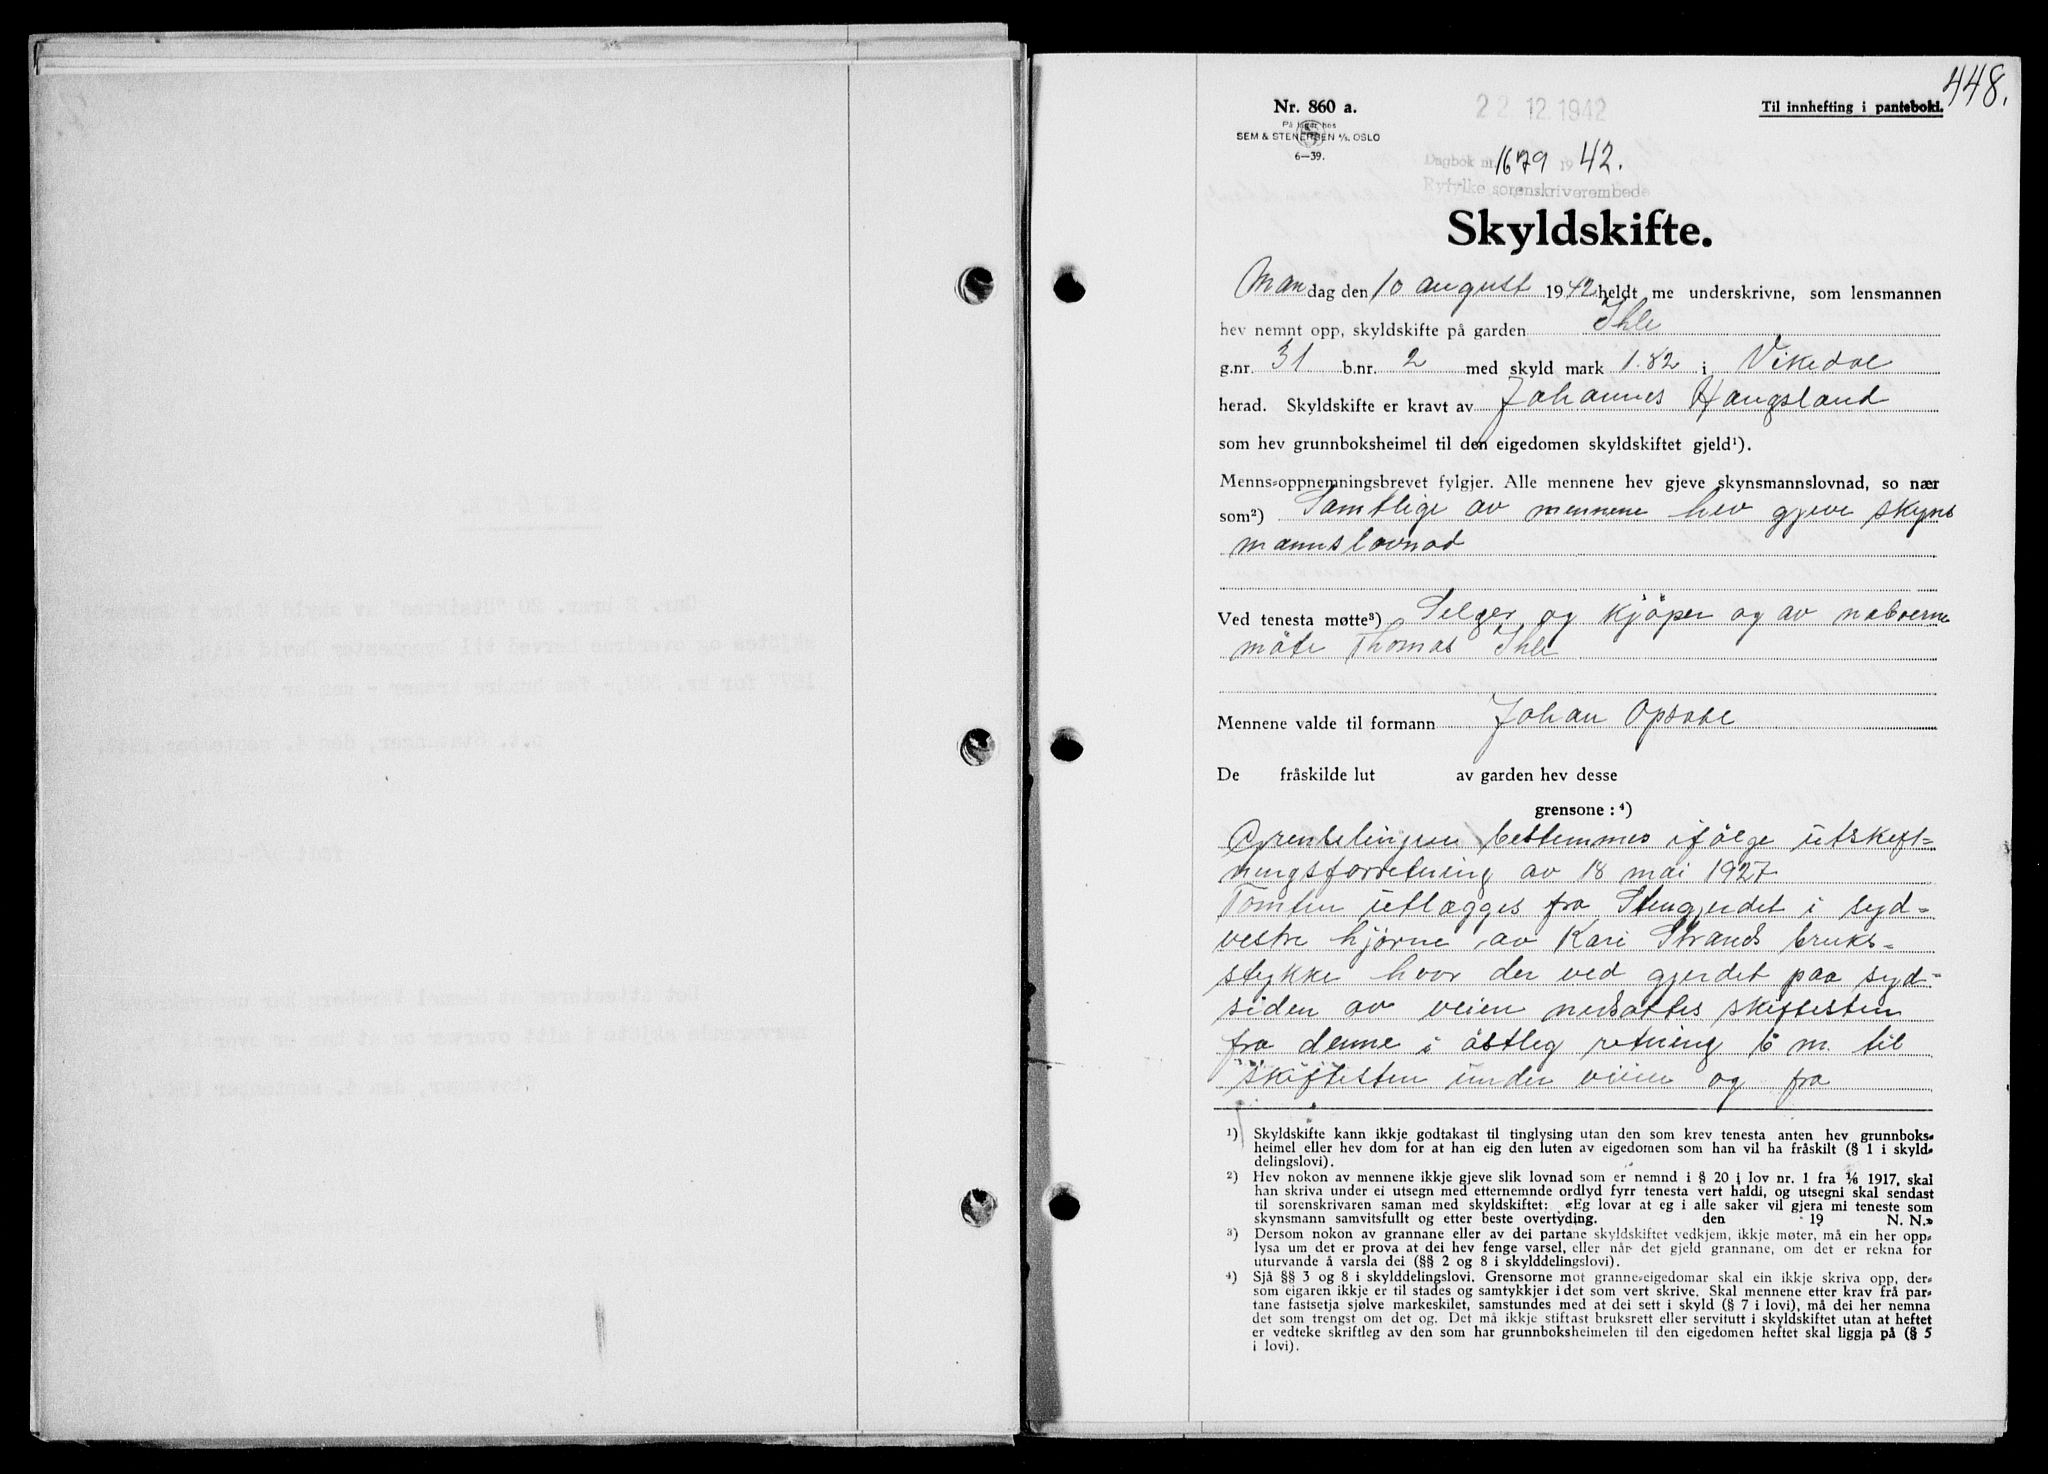 448.
Nr. 860 a.
På lager hos
SEM & STENERSEN A/S. OSLO
6—39.
22.12.1942
Til innhefting i panteboki.
Dagbok nr. 1679 1942.
Ryfylke sorenskriverembede
Skyldskifte.
Mandag den 10 august 1942 heldt me underskrivne, som lensmannen
hev nemnt opp, skyldskifte på garden Ihle
g.nr. 31 b.nr. 2 med skyld mark 1.82 i Vikedal
herad. Skyldskifte er kravt av Johannes Haugsland
som hev grunnboksheimel til den eigedomen skyldskiftet gjeld¹).
Menns-oppnemningsbrevet fylgjer. Alle mennene hev gjeve skynsmannslovnad, so nær
som²) Samtlige av mennene hev gjeve skyns
mannslovnad
Ved tenesta møtte³) Selger og kjöper og av naboerne
möte Thomas Ihle
Mennene valde til formann Johan Opsahl
De fråskilde lut av garden hev desse
grensone: ⁴)
Grenselinjen bestemmes ifölge utskift-
ningsforretning av 18 mai 1927
Tomten utlægges fra Stengjerdet i syd-
vestre hjørne av Kari Strands bruks-
stykke hvor der ved gjerdet paa syd-
siden av veien nedsattes skiftesten
fra denne i östleg retning 16 m. til
skiftesten under veien og fra
¹) Skyldskifte kann ikkje godtakast til tinglysing utan den som krev tenesta anten hev grunnboks-
heimel eller hev dom for at han eig den luten av eigedomen som han vil ha fråskilt (§ 1 i skyld-
delingslovi).
²) Hev nokon av mennene ikkje gjeve slik lovnad som er nemnd i § 20 i lov nr. 1 fra ⅙ 1917, skal
han skriva under ei utsegn med etternemnde ordlyd fyrr tenesta vert haldi, og utsegni skal sendast
til sorenskrivaren saman med skyldskiftet: «Eg lovar at eg i alle saker vil gjera mi teneste som
skynsmann samvitsfullt og etter beste overtyding. den 19 N. N.»
³) Dersom nokon av grannane eller av dei partane skyldskiftet vedkjem, ikkje møter, må ein her opp-
lysa um det er prova at dei hev fenge varsel, eller når det gjeld grannane, om det er rekna for
uturvande å varsla dei (§§ 2 og 8 i skylddelingslovi).
⁴) Sjå §§ 3 og 8 i skylddelingslovi. Grensorne mot granne-eigedomar skal ein ikkje skriva opp, der-
som eigaren ikkje er til stades og samtykkjer i det som vert skrive. Skal mennene etter krav frå par-
tane fastsetja sjølve markeskilet, samstundes med at dei sett i skyld (§ 7 i lovi), må dei her nemna
det som trengst om det og. Det må ikkje stiftast bruksrett eller servitutt i skyldskiftet utan at heftet
er vedteke skriftleg av den som har grunnboksheimelen til den eigedomen heftet skal liggja på (§ 5
i lovi).